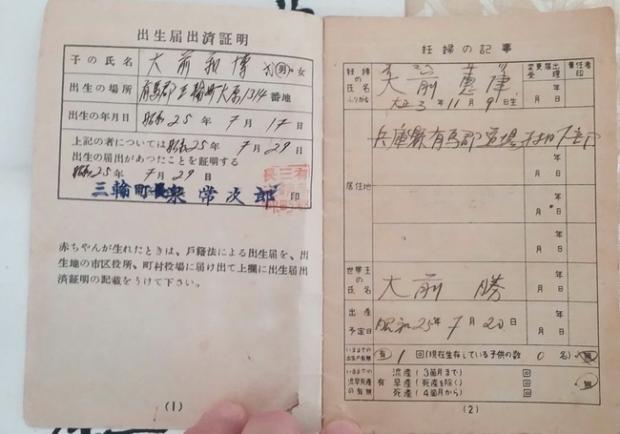 出生届出済証明
子の氏名 大前和博 男・女
出生の場所 有馬郡三輪町大原1314番地
出生の年月日 昭和25年7月17日
上記の者については昭和25年7月29日
出生の届出があつたことを証明する
昭和25年7月29日
三輪町長 常次郎 印
赤ちやんが生れたときは、戸籍法による出生届を、出
生地の市区役所、町村役場に届け出て上欄に出生届出
済証明の記載をうけて下さい。
(1)
妊婦の記事
妊婦の氏名 ふりがな 大前
大正3年11月9日生
変更届出受理 年月日
責任者印
居住地 兵庫縣有馬郡道場村
年月日
年月日
年月日
年月日
世帯主の氏名 大前勝
年月日
出産予定日 昭和25年7月20日
年月日
いままでの出産の有無 有 1回(現在生存している子供の数 0名) 無
いままでの流早死産の有無 有
流産(3箇月まで) 回
早産(死産を除く) 回
死産(4箇月から) 回
無
(2)